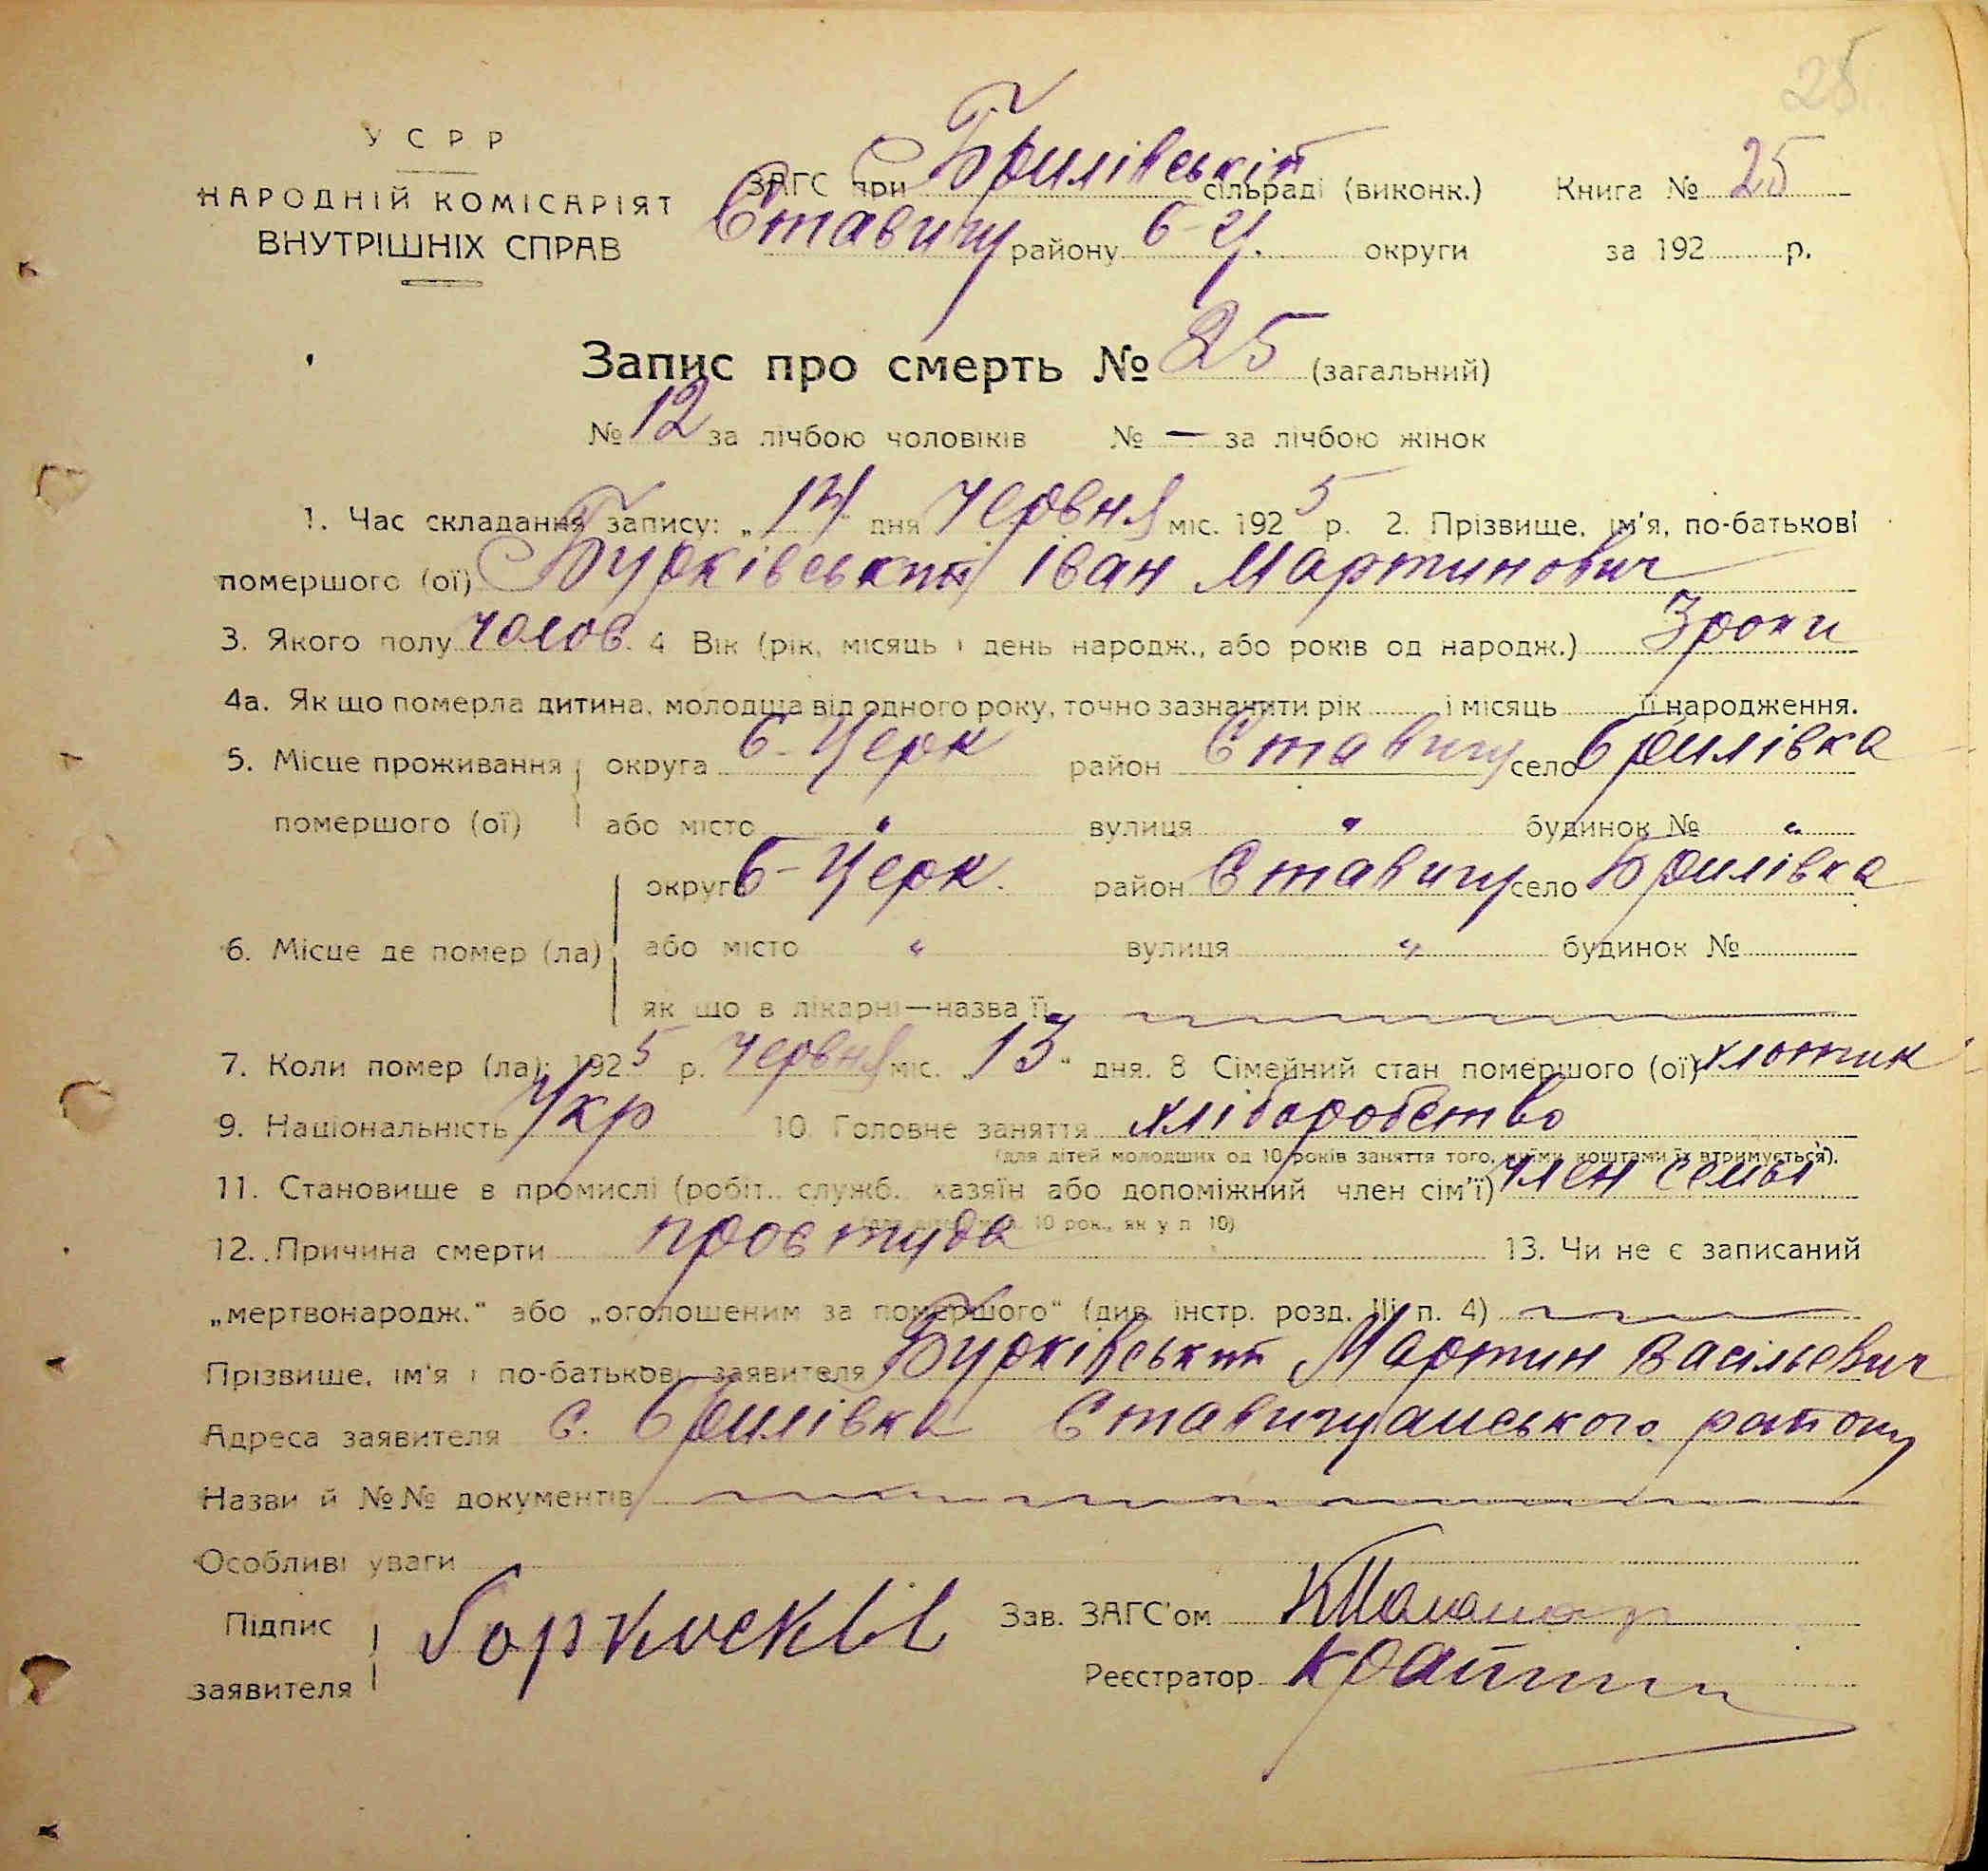 25
У С Р Р
НАРОДНІЙ КОМІСАРІЯТ
ВНУТРІШНІХ СПРАВ
ЗАГС при Брилівській сільраді (виконк.) Книга № 25
Ставищ району Б-Ц. округи за 192 р.
Запис про смерть № 25 (загальний)
№ 12 за лічбою чоловіків № — за лічбою жінок
1. Час складання запису: „14" дня Червня міс. 1925 р. 2. Прізвище, ім'я, по-батькові
помершого (ої) Бурківський Іван Мартинович
3. Якого полу чолов. 4 Вік (рік, місяць і день народж., або років од народж.) 3 роки
4а. Як що померла дитина, молодша від одного року, точно зазначити рік і місяць її народження.
5. Місце проживання округа Б-Церк район Ставищ село Брилівка
помершого (ої) або місто " вулиця " будинок № "
округа Б-Церк. район Ставищ село Брилівка
6. Місце де помер (ла) або місто " вулиця " будинок №
як що в лікарні—назва її
7. Коли помер (ла): 1925 р. Червня міс. „13" дня. 8 Сімейний стан помершого (ої) хлопчик
9. Національність Укр 10. Головне заняття хліборобство
(для дітей молодших од 10 років заняття того, чиїми коштами їх втримується).
11. Становище в промислі (робіт., служб., хазяїн або допоміжний член сім'ї) член семьї
(для дітей мол. 10 рок., як у п 10)
12. Причина смерти простуда 13. Чи не є записаний
„мертвонародж." або „оголошеним за помершого" (див. інстр. розд. III п. 4)
Прізвище, ім'я і по-батькові заявителя Бурківський Мартин Васільевич
Адреса заявителя с. Брилівка Ставищанського району
Назви й №№ документів
Особливі уваги
Підпис
заявителя
Зав. ЗАГС'ом
Реєстратор